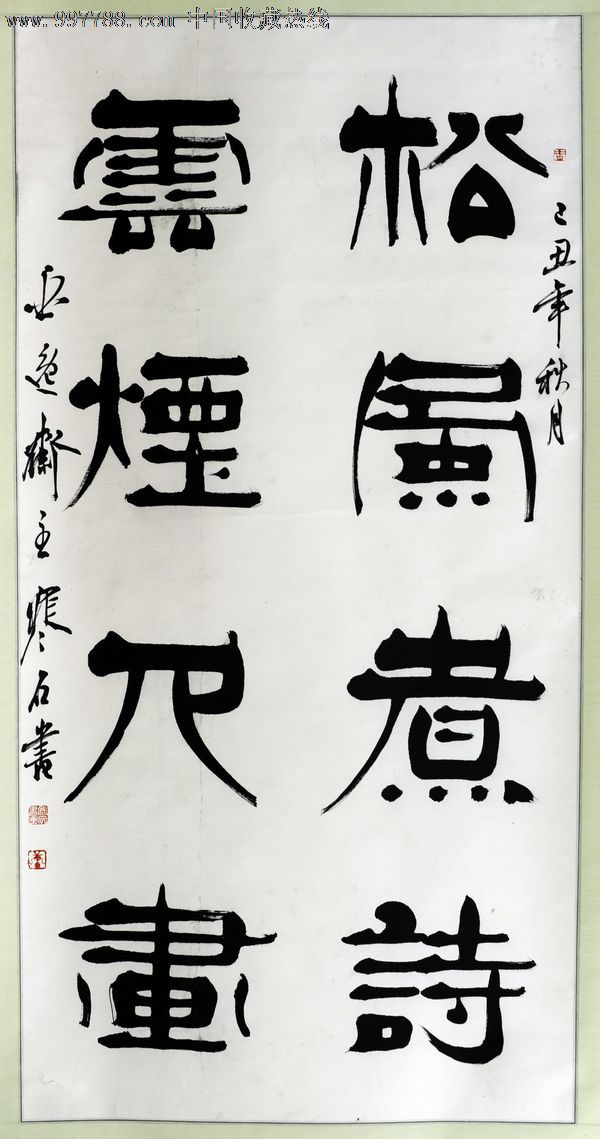 www.997788.com 中国收藏热线
己丑年秋月
松風煮詩
雲煙入畫
逸齋主寒石書